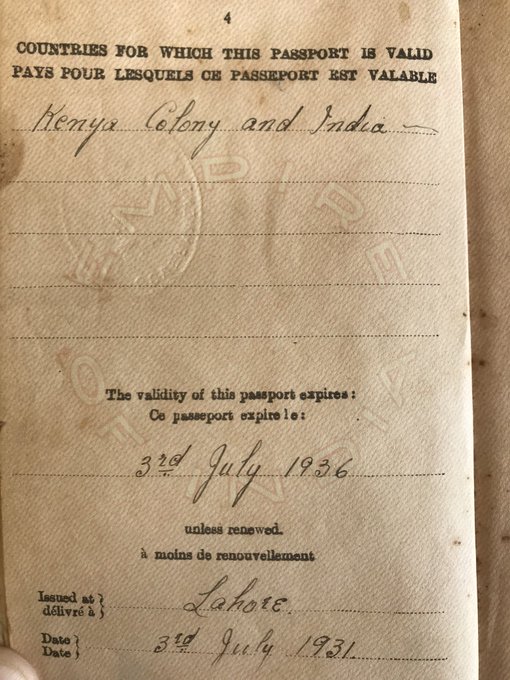 4
COUNTRIES FOR WHICH THIS PASSPORT IS VALID
PAYS POUR LESQUELS CE PASSEPORT EST VALABLE
Kenya Colony and India —
EMPIRE
OF INDIA
The validity of this passport expires:
Ce passeport expire le:
3rd July 1936
unless renewed.
à moins de renouvellement
Issued at }
délivré à } Lahore.
Date }
Date } 3rd July 1931.